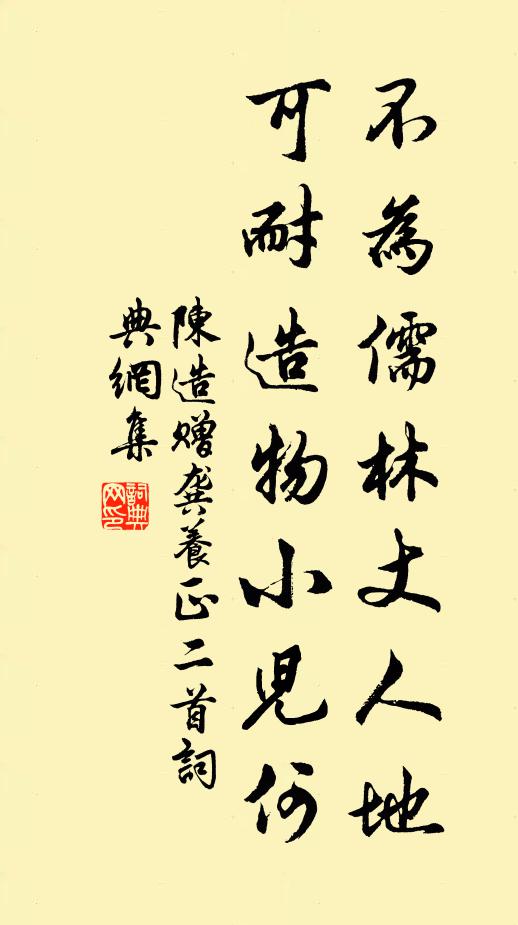 不為儒林丈人地
可耐造物小兒何
陳造贈龔養正二首詞
典網集
詞典網印